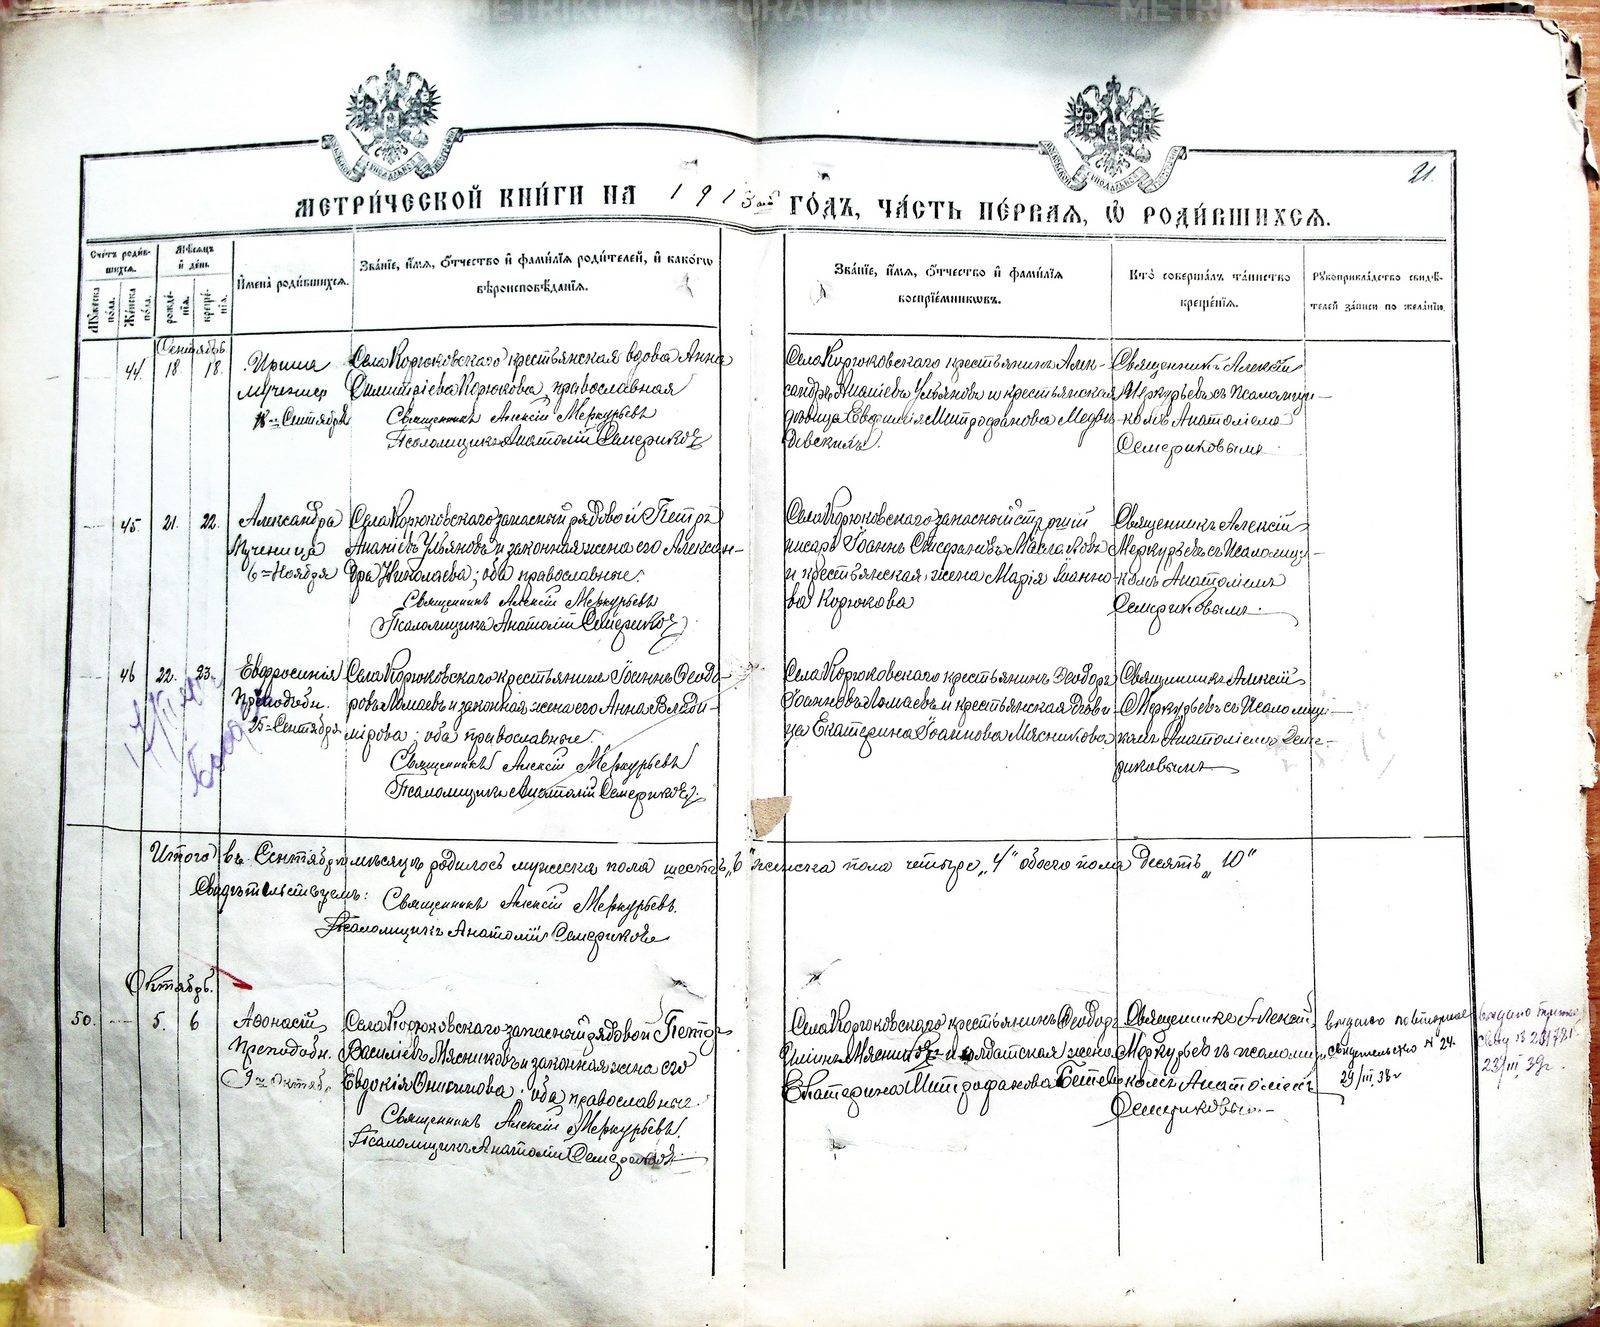 METRIKI.GASU-URAL.RU
METRIKI.GASU-URAL.RU
21.
МЕТРИ́ЧЕСКОЙ КНИ́ГИ НА 1913 ГО́ДЪ, ЧА́СТЬ ПЕ́РВАЯ, Ѡ РОДИ́ВШИХСЯ.
Сче́тъ роди́в-
шихся.
Му́жеска по́ла.
Же́нска по́ла.
Мѣ́сяцъ
и де́нь
рожде́-
нія.
креще́-
нія.
Имена̀ роди́вшихся.
Зва́ніе, и́мя, о́тчество и фами́лія роди́телей, и како́гѡ
вѣроисповѣ́данія.
Зва́ніе, и́мя, о́тчество и фами́лія
воспріе́мниковъ.
Кто̀ соверша́лъ та́инство
креще́нія.
Рукоприкла́дство свидѣ́-
телей за́писи по жела́нію.
Сентябрь
44. 18. 18.
Ирина
мучениц
18 Сентября
Села Корюковскаго крестьянская вдова Анна
Димитріева Корюкова, православная
Священникъ Алексій Меркурьевъ
Псаломщикъ Анатолій Семериковъ
Села Корюковскаго крестьянинъ Алек-
сандръ Ананіевъ Ульяновъ и крестьянская
дѣвица Евфимія Митрофанова
Священникъ Алексій
Меркурьевъ съ Псаломщи-
комъ Анатоліемъ
Семериковымъ
45. 21. 22.
Александра
Мученица
6 Ноября
Села Корюковскаго запасный рядовой Петръ
Ананіевъ Ульяновъ и законная жена его Алексан-
дра Николаева; оба православные.
Священникъ Алексій Меркурьевъ
Псаломщикъ Анатолій Семериковъ
Села Корюковскаго запасный старшій
писарь Іоаннъ Стефановъ Маслаковъ
и крестьянская жена Марія Іоанно-
ва Корюкова
Священникъ Алексій
Меркурьевъ съ Псаломщи-
комъ Анатоліемъ
Семериковымъ.
46 22. 23.
Евфросинія
Преподобн.
25 Сентября
Села Корюковскаго крестьянинъ Іоаннъ Ѳеодо-
ровъ Ломаевъ и законная жена его Анна Влади-
мірова; оба православные.
Священникъ Алексій Меркурьевъ
Псаломщикъ Анатолій Семериковъ.
Села Корюковскаго крестьянинъ Ѳеодоръ
Іоанновъ Ломаевъ и крестьянская дѣви-
ца Екатерина Іоаннова Мясникова
Священникъ Алексій
Меркурьевъ съ Псаломщи-
комъ Анатоліемъ Семе-
риковымъ
Итого въ Сентябрѣ мѣсяцѣ родилось мужеска пола шесть „6" женска пола четыре „4" обоего пола десять „10"
Свидѣтельствуемъ: Священникъ Алексій Меркурьевъ.
Псаломщикъ Анатолій Семериковъ
Октябрь.
50. 5. 6
Аѳонасій
Преподобн.
9 Октябр.
Села Корюковскаго запасный рядовой Петръ
Василіевъ Мясниковъ и законная жена его
Евдокія Онисимова; оба православные.
Священникъ Алексій Меркурьевъ.
Псаломщикъ Анатолій Семериковъ
Села Корюковскаго крестьянинъ Ѳеодоръ
Мясниковъ и солдатская жена
Екатерина Митрофанова
Священникъ Алексій
Меркурьевъ съ псаломщи
комъ Анатоліемъ
Семериковымъ
выдано повторное
свидетельство № 24.
29/III 38 г
выдано
23/III 39г.
METRIKI.GASU-URAL.RU
METRIKI.GASU-URAL.RU